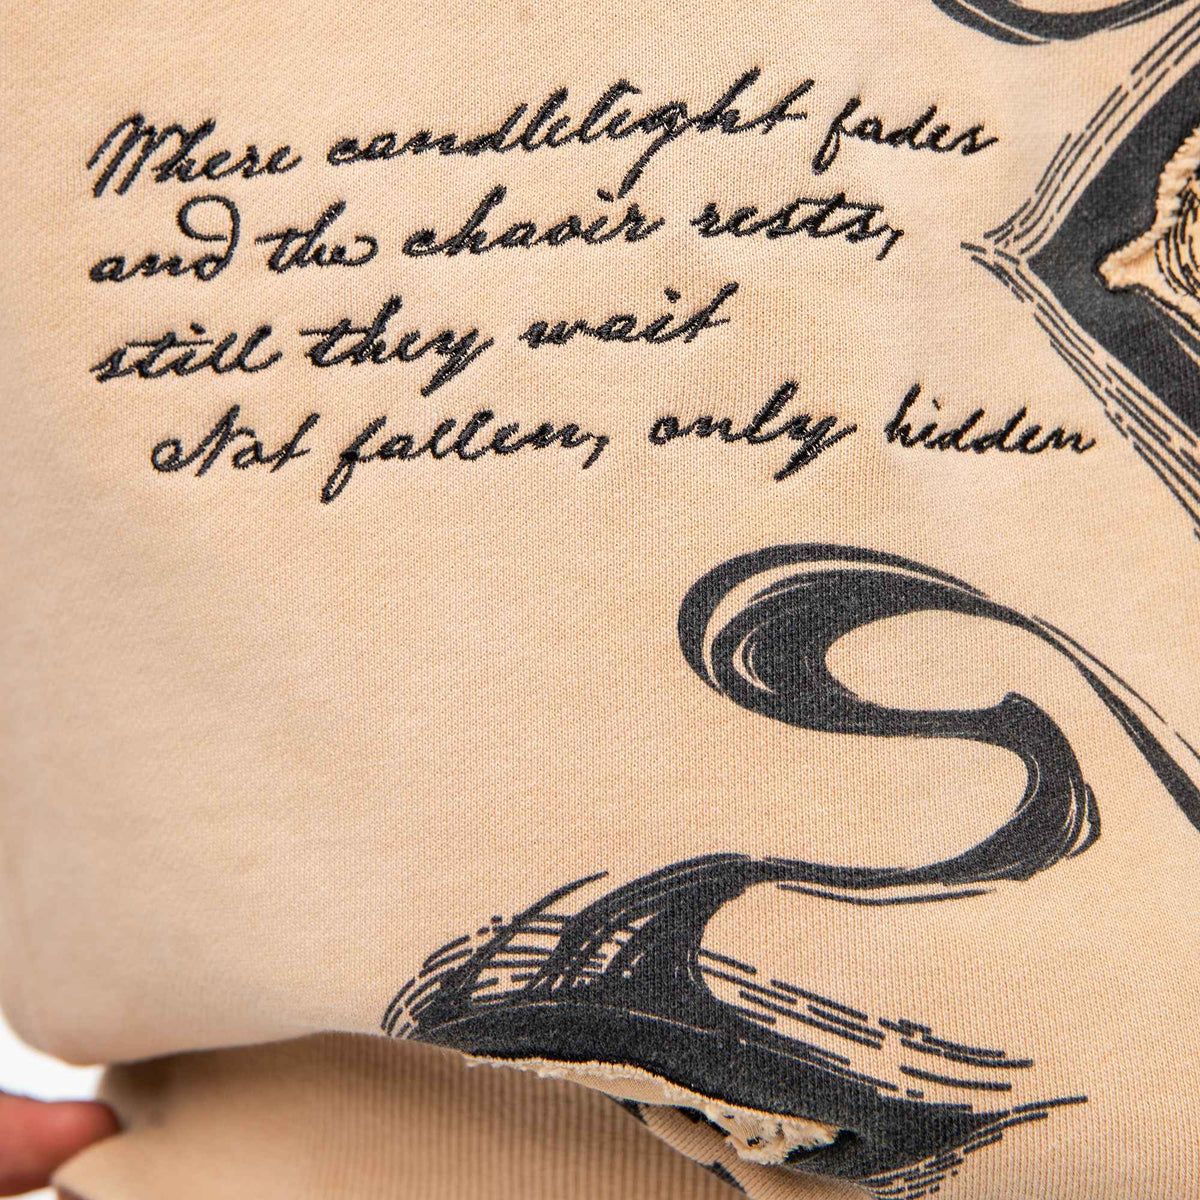 Where candleligght fades
and the chavir rests,
still they wait
Not fallen, only hidden